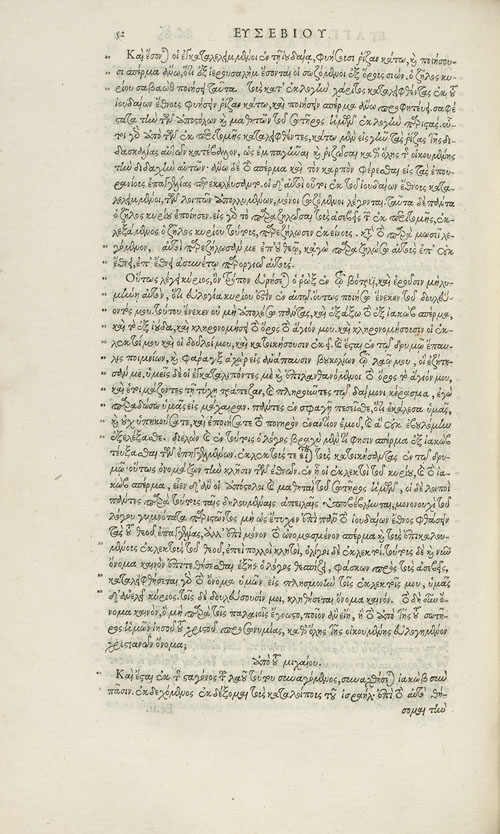 52 ΕΥΣΕΒΙΟΥ
Καὶ ἔσονται οἱ ἐγκαταλελειμμένοι ἐν τῇ ἰουδαίᾳ, φυήσουσι ῥίζαν κάτω, καὶ ποιήσου-
σι σπέρμα ἄνω, ὅτι ἐξ ἱερουσαλὴμ ἔσονται οἱ σωζόμενοι ἐξ ὄρους σιών. ὁ ζῆλος κυ-
ρίου σαβαὼθ ποιήσει ταῦτα. τοὺς κατ' ἐκλογὴν χάριτος καταλειφθέντας ἐκ τοῦ
ἰουδαίων ἔθνους φυήσειν ῥίζαν κάτω, καὶ ποιήσειν σπέρμα ἄνω προφητεύει. σαφέ-
στατα τὴν τῶν ἀποστόλων καὶ μαθητῶν τοῦ σωτῆρος ἡμῶν ἐκλογὴν παριστάς. οὗ-
τοι γὰρ ἀπὸ τῶν ἐκ περιτομῆς καταλειφθέντες, κάτω μὲν εἰς γῆν τὰς ῥίζας τῆς δι-
δασκαλίας αὐτῶν κατέβαλον, ὡς ἐμπαγῆναι καὶ ῥιζωθῆναι καθ' ὅλης τῆς οἰκουμένης
τὴν διδαχὴν αὐτῶν· ἄνω δὲ τὸ σπέρμα καὶ τὸν καρπὸν φέρεσθαι εἰς τὰς ἐπου-
ρανίους ἐπαγγελίας παρεκελεύσαντο. οἱ δ' αὐτοὶ οὗτοι ἐκ τοῦ ἰουδαίων ἔθνους κατα-
λελειμμένοι, τῶν λοιπῶν ἀπολλυμένων, μόνοι σωζόμενοι λέγονται. ταῦτα δὲ πάντα
ὁ ζῆλος κυρίου ἐποίησεν. εἰς γὰρ τὸ παραζηλῶσαι τοὺς ἀσεβεῖς τῶν ἐκ περιτομῆς, ἐκ-
λεξάμενος ὁ ζῆλος κυρίου τούτους, παρεζήλωσεν ἐκείνους. κατὰ τὸ παρὰ μωσεῖ λε-
γόμενον, αὐτοὶ παρεζήλωσάν με ἐπ' οὐ θεῷ, κἀγὼ παραζηλώσω αὐτοὺς ἐπ' οὐκ
ἔθνει, ἐπ' ἔθνει ἀσυνέτῳ παροργιῶ αὐτούς.
Οὕτως λέγει κύριος, ὃν τρόπον εὑρεθήσεται ὁ ῥὼξ ἐν τῷ βότρυϊ, καὶ ἐροῦσιν μὴ λυ-
μήνῃ αὐτὸν, ὅτι εὐλογία κυρίου ἐστὶν ἐν αὐτῷ. οὕτως ποιήσω ἕνεκεν τοῦ δουλεύ-
οντός μου. τούτου ἕνεκεν οὐ μὴ ἀπολέσω πάντας, καὶ ἐξάξω τὸ ἐξ ἰακὼβ σπέρμα,
καὶ τὸ ἐξ ἰούδα, καὶ κληρονομήσει τὸ ὄρος τὸ ἅγιόν μου, καὶ κληρονομήσουσιν οἱ ἐκ-
λεκτοί μου καὶ οἱ δοῦλοί μου, καὶ κατοικήσουσιν ἐκεῖ. καὶ ἔσται ἐν τῷ δρυμῷ ἐπαυ-
λις ποιμνίων, καὶ φάραγξ ἀχὼρ εἰς ἀνάπαυσιν βουκολίων τῷ λαῷ μου, οἳ ἐζήτη-
σάν με. ὑμεῖς δὲ οἱ ἐγκαταλιπόντες με καὶ ἐπιλανθανόμενοι τὸ ὄρος τὸ ἅγιόν μου,
καὶ ἑτοιμάζοντες τῇ τύχῃ τράπεζαν, καὶ πληροῦντες τῷ δαίμονι κέρασμα, ἐγὼ
παραδώσω ὑμᾶς εἰς μάχαιραν. πάντες ἐν σφαγῇ πεσεῖσθε, ὅτι ἐκάλεσα ὑμᾶς,
καὶ οὐχ ὑπηκούσατε, καὶ ἐποιήσατε τὸ πονηρὸν ἐναντίον ἐμοῦ, καὶ ἃ οὐκ ἐβουλόμην
ἐξελέξασθε. διελὼν καὶ ἐν τούτοις ὁ λόγος βραχὺ μέν τί φησιν σπέρμα ἐξ ἰακὼβ
τεύξασθαι τῶν ἐπηγγελμένων. ἐκλεκτούς τε εἶναι τοὺς κατοικήσοντας ἐν τῷ δρυ-
μῷ. οὕτως ὀνομάζων τὴν κλῆσιν τῶν ἐθνῶν. ἐν ᾗ οἱ ἐκλεκτοὶ τοῦ κυρίου, καὶ τὸ ἰα-
κὼβ σπέρμα, εἶεν δ' ἂν οἱ ἀπόστολοι καὶ μαθηταὶ τοῦ σωτῆρος ἡμῶν, οἱ δὲ λοιποὶ
πάντες παρὰ τούτους ταῖς δηλουμέναις ἀπειλαῖς ὑποβέβληνται, μονονουχὶ τοῦ
λόγου γυμνότατα παριστῶντος μὴ ὡς ἔτυχεν ἐπὶ πᾶν τὸ ἰουδαίων ἔθνος φθάσειν
τὰς τοῦ θεοῦ ἐπαγγελίας, ἀλλ' ἐπὶ μόνον τὸ ὠνομασμένον σπέρμα καὶ τοὺς ἐπικαλου-
μένους ἐκλεκτοὺς τοῦ θεοῦ, ἐπεὶ πολλοὶ κλητοὶ, ὀλίγοι δὲ ἐκλεκτοί. τούτοις δὲ καὶ νέον
ὄνομα καινὸν ἐπιτεθήσεσθαι ἑξῆς ὁ λόγος θεσπίζει, φάσκων πρὸς τοὺς ἀσεβεῖς,
καταλειφθήσεται γὰρ τὸ ὄνομα ὑμῶν εἰς πλησμονὴν τοῖς ἐκλεκτοῖς μου, ὑμᾶς
δ' ἀνελεῖ κύριος. τοῖς δὲ δουλεύουσίν μοι, κληθήσεται ὄνομα καινόν. τὸ δὲ νέον ὄ-
νομα καινὸν, ὃ μὴ παρὰ τοῖς παλαιοῖς ἔγνωστο, ποῖον ἂν εἴη, ἢ τὸ ἀπὸ τῆς τοῦ σωτῆ-
ρος ἡμῶν ἰησοῦ τοῦ χριστοῦ προσωνυμίας, καθ' ὅλης τῆς οἰκουμένης εὐλογημένον
χριστιανῶν ὄνομα;
ἀπὸ τοῦ μιχαίου.
Καὶ ἔσται ἐκ τῆς σταγόνος τοῦ λαοῦ τούτου συναγόμενος, συναχθήσεται ἰακὼβ σὺν
πᾶσιν. ἐκδεχόμενος ἐκδέξομαι τοὺς καταλοίπους τοῦ ἰσραήλ. ἐπὶ τὸ αὐτὸ θή-
σομαι τὴν